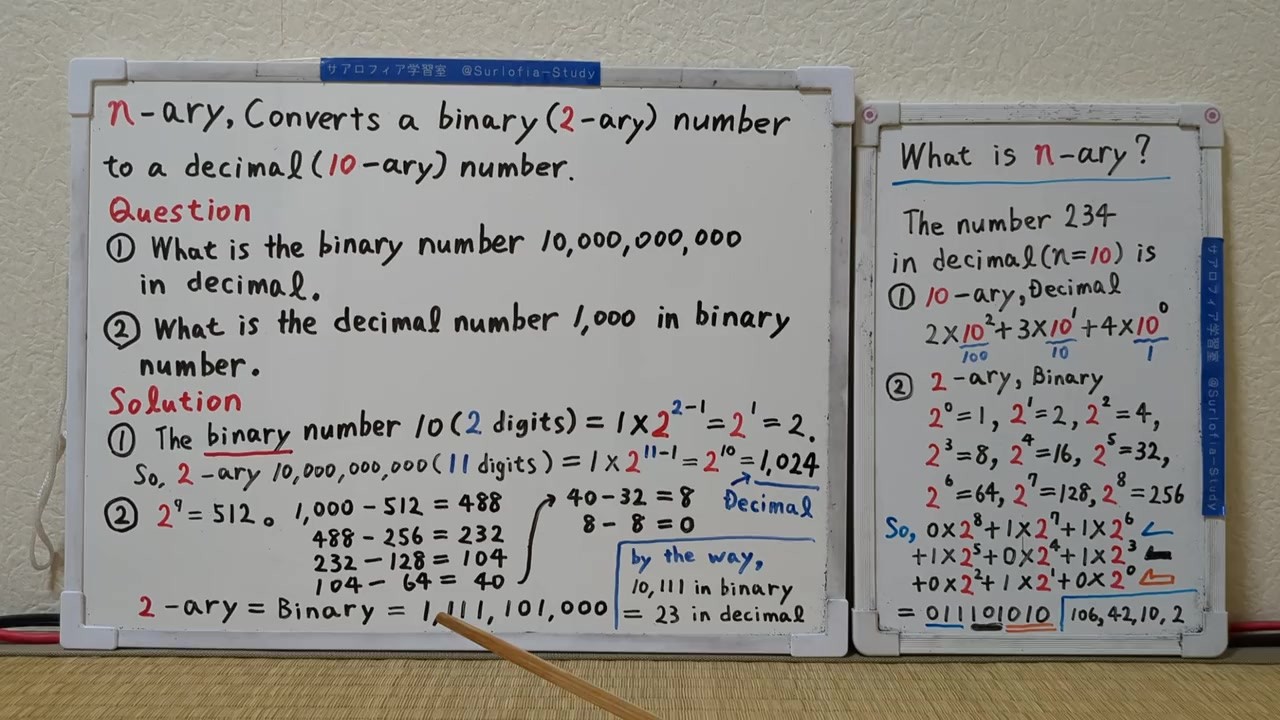 サアロフィア学習室 @Surlofia-Study
n-ary, Converts a binary (2-ary) number
to a decimal (10-ary) number.
Question
① What is the binary number 10,000,000,000
in decimal.
② What is the decimal number 1,000 in binary
number.
Solution
① The binary number 10 (2 digits) = 1×2²⁻¹ = 2¹ = 2.
So, 2-ary 10,000,000,000 (11 digits) = 1×2¹¹⁻¹ = 2¹⁰ = 1,024
Decimal
② 2⁹ = 512。 1,000 - 512 = 488
488 - 256 = 232
232 - 128 = 104
104 - 64 = 40
40 - 32 = 8
8 - 8 = 0
2-ary = Binary = 1,111,101,000
by the way,
10,111 in binary
= 23 in decimal
What is n-ary?
The number 234
in decimal (n=10) is
① 10-ary, Decimal
2×10²+3×10¹+4×10⁰
100 10 1
② 2-ary, Binary
2⁰=1, 2¹=2, 2²=4,
2³=8, 2⁴=16, 2⁵=32,
2⁶=64, 2⁷=128, 2⁸=256
So, 0×2⁸+1×2⁷+1×2⁶
+1×2⁵+0×2⁴+1×2³
+0×2²+1×2¹+0×2⁰
= 011101010 106,42,10,2
サアロフィア学習室 @Surlofia-Study